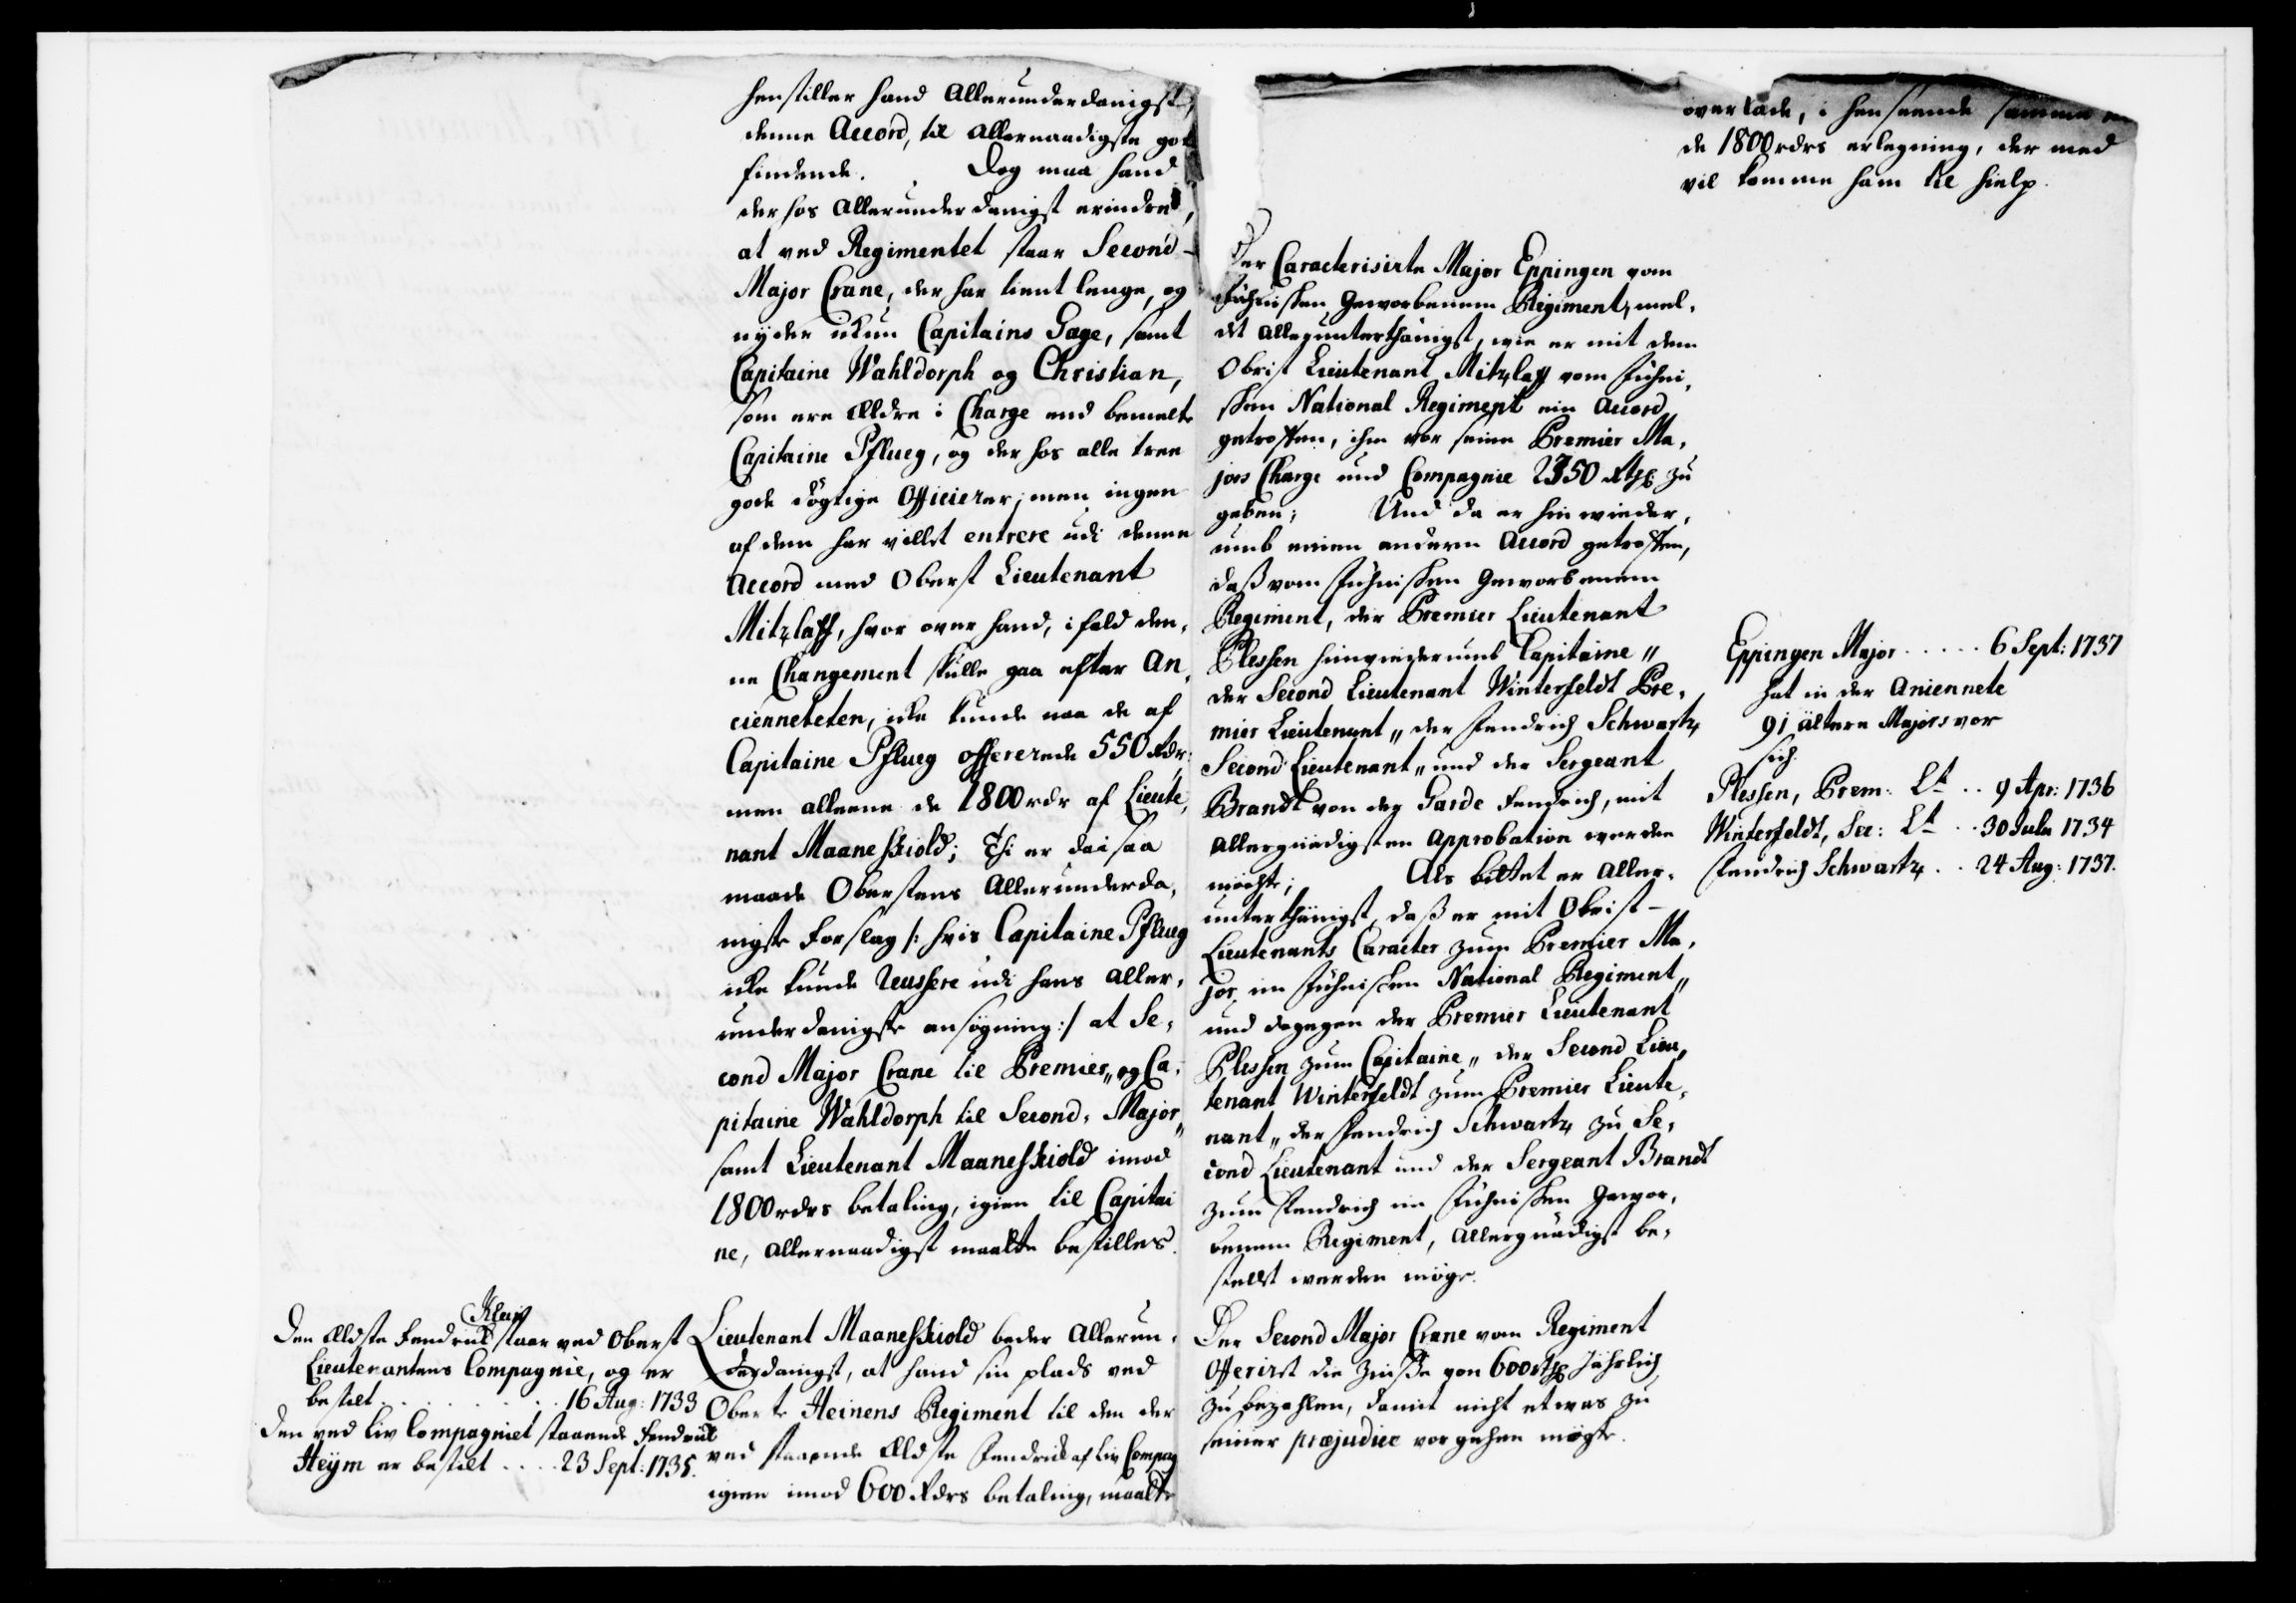 henstiller hand Allerunderdanigst
denne Accord, til Allernaadigste got
findende. Dog maa hand
der hos Allerunderdanigst erindre,
at ved Regimentet staar Second-
Major Crane, der har tient lenge, og
nyder ikun Capitains Gage, samt
Capitaine Wahldorph og Christian,
som ere Ældre i Charge end bemelte
Capitaine Pflueg, og der hos alle tree
gode dögtige Officierer, men ingen
af dem har villet entrere udi denne
Accord med Oberst Lieutenant
Mitzlaff, hvor over hand, ifald den-
ne Changement skulle gaa efter An-
cienneteten, icke kunde naa de af
Capitaine Pflueg offererede 550 Rdr:
men alleene de 1800 rdr af Lieute-
nant Maaneskiold; Thi er da saa
maade Oberstens Allerunderda-
nigste Forslag /: hvis Capitaine Pflueg
icke kunde reussere udi hans Aller-
underdanigste ansögning :/ at Se-
cond Major Crane til Premier,, og Ca-
pitaine Wahldorph til Second-Major,,
samt Lieutenant Maaneskiold imod
1800 rdrs betaling, igien til Capitai
ne, Allernaadigst maatte bestilles.
Klein
Den Ældste Fendrick staar ved Oberst
Lieutenantens Compagnie, og er
bestilt . . . . . 16 Aug: 1733
Den ved Liv Compagniet staaende Fendrick
Heÿm er bestilt . . . . 23 Sept: 1735.
Lieutenant Maaneskiold beder Allerun-
derdanigst, at hand sin plads ved
Oberste Heinens Regiment til den der
ved staaende Ældste Fendrick af Liv Compag
igien imod 600 Rdrs betaling, maatte
overlade, i henseende samme
de 1800 rdrs erlegning, der med
vil komme ham til hielp.
Der Caracterisirte Major Eppingen vom
Fühnischen Geworbenem Regiment, mel-
det Allerunterthänigst, wie er mit dem
Obrist Lieutenant Mitzlaff vom Fühni-
schen National Regiment ein Accord
getroffen, ihm vor seine Premier Ma-
jors Charge und Compagnie 2350 Rthl zu
geben; Und da er hinwieder-
umb einen andern Accord getroffen,
daß vom Fühnischen Geworbenem
Regiment, der Premier Lieutenant
Plessen hinwiederumb Capitaine,,
der Second Lieutenant Winterfeldt Pre-
mier Lieutenant,, der Fendrich Schwartz
Second Lieutenant,, und der Sergeant
Brandt von der Garde Fendrich, mit
Allergnädigsten Approbation werden
möchte; Als bittet er Aller-
unterthänigst, daß er mit Obrist-
Lieutenants Caracter zum Premier Ma-
jor im Fühnischen National Regiment,,
und dagegen der Premier Lieutenant
Plessen zum Capitaine,, der Second Lieu-
tenant Winterfeldt zum Premier Lieute-
nant,, der Fendrich Schwartz zu Se-
cond Lieutenant und der Sergeant Brandt
zum Fendrich im Fühnischen Gewor-
benem Regiment, Allergnädigst be-
stellt werden möge.
Der Second Major Crane vom Regiment
Offerirt die Zinße von 600 Rthl Jährlich
zu bezahlen, damit nicht etwas zu
seiner præjudice vorgehen mögte.
Eppingen Major . . . . . 6 Sept: 1737
hat in der Aniennete
91 ältere Majors vor
sich.
Plessen, Prem: Lt . . 9 Apr: 1736
Winterfeldt, Sec: Lt . . 30 Julii 1734
Fendrich Schwartz . . 24 Aug: 1737.